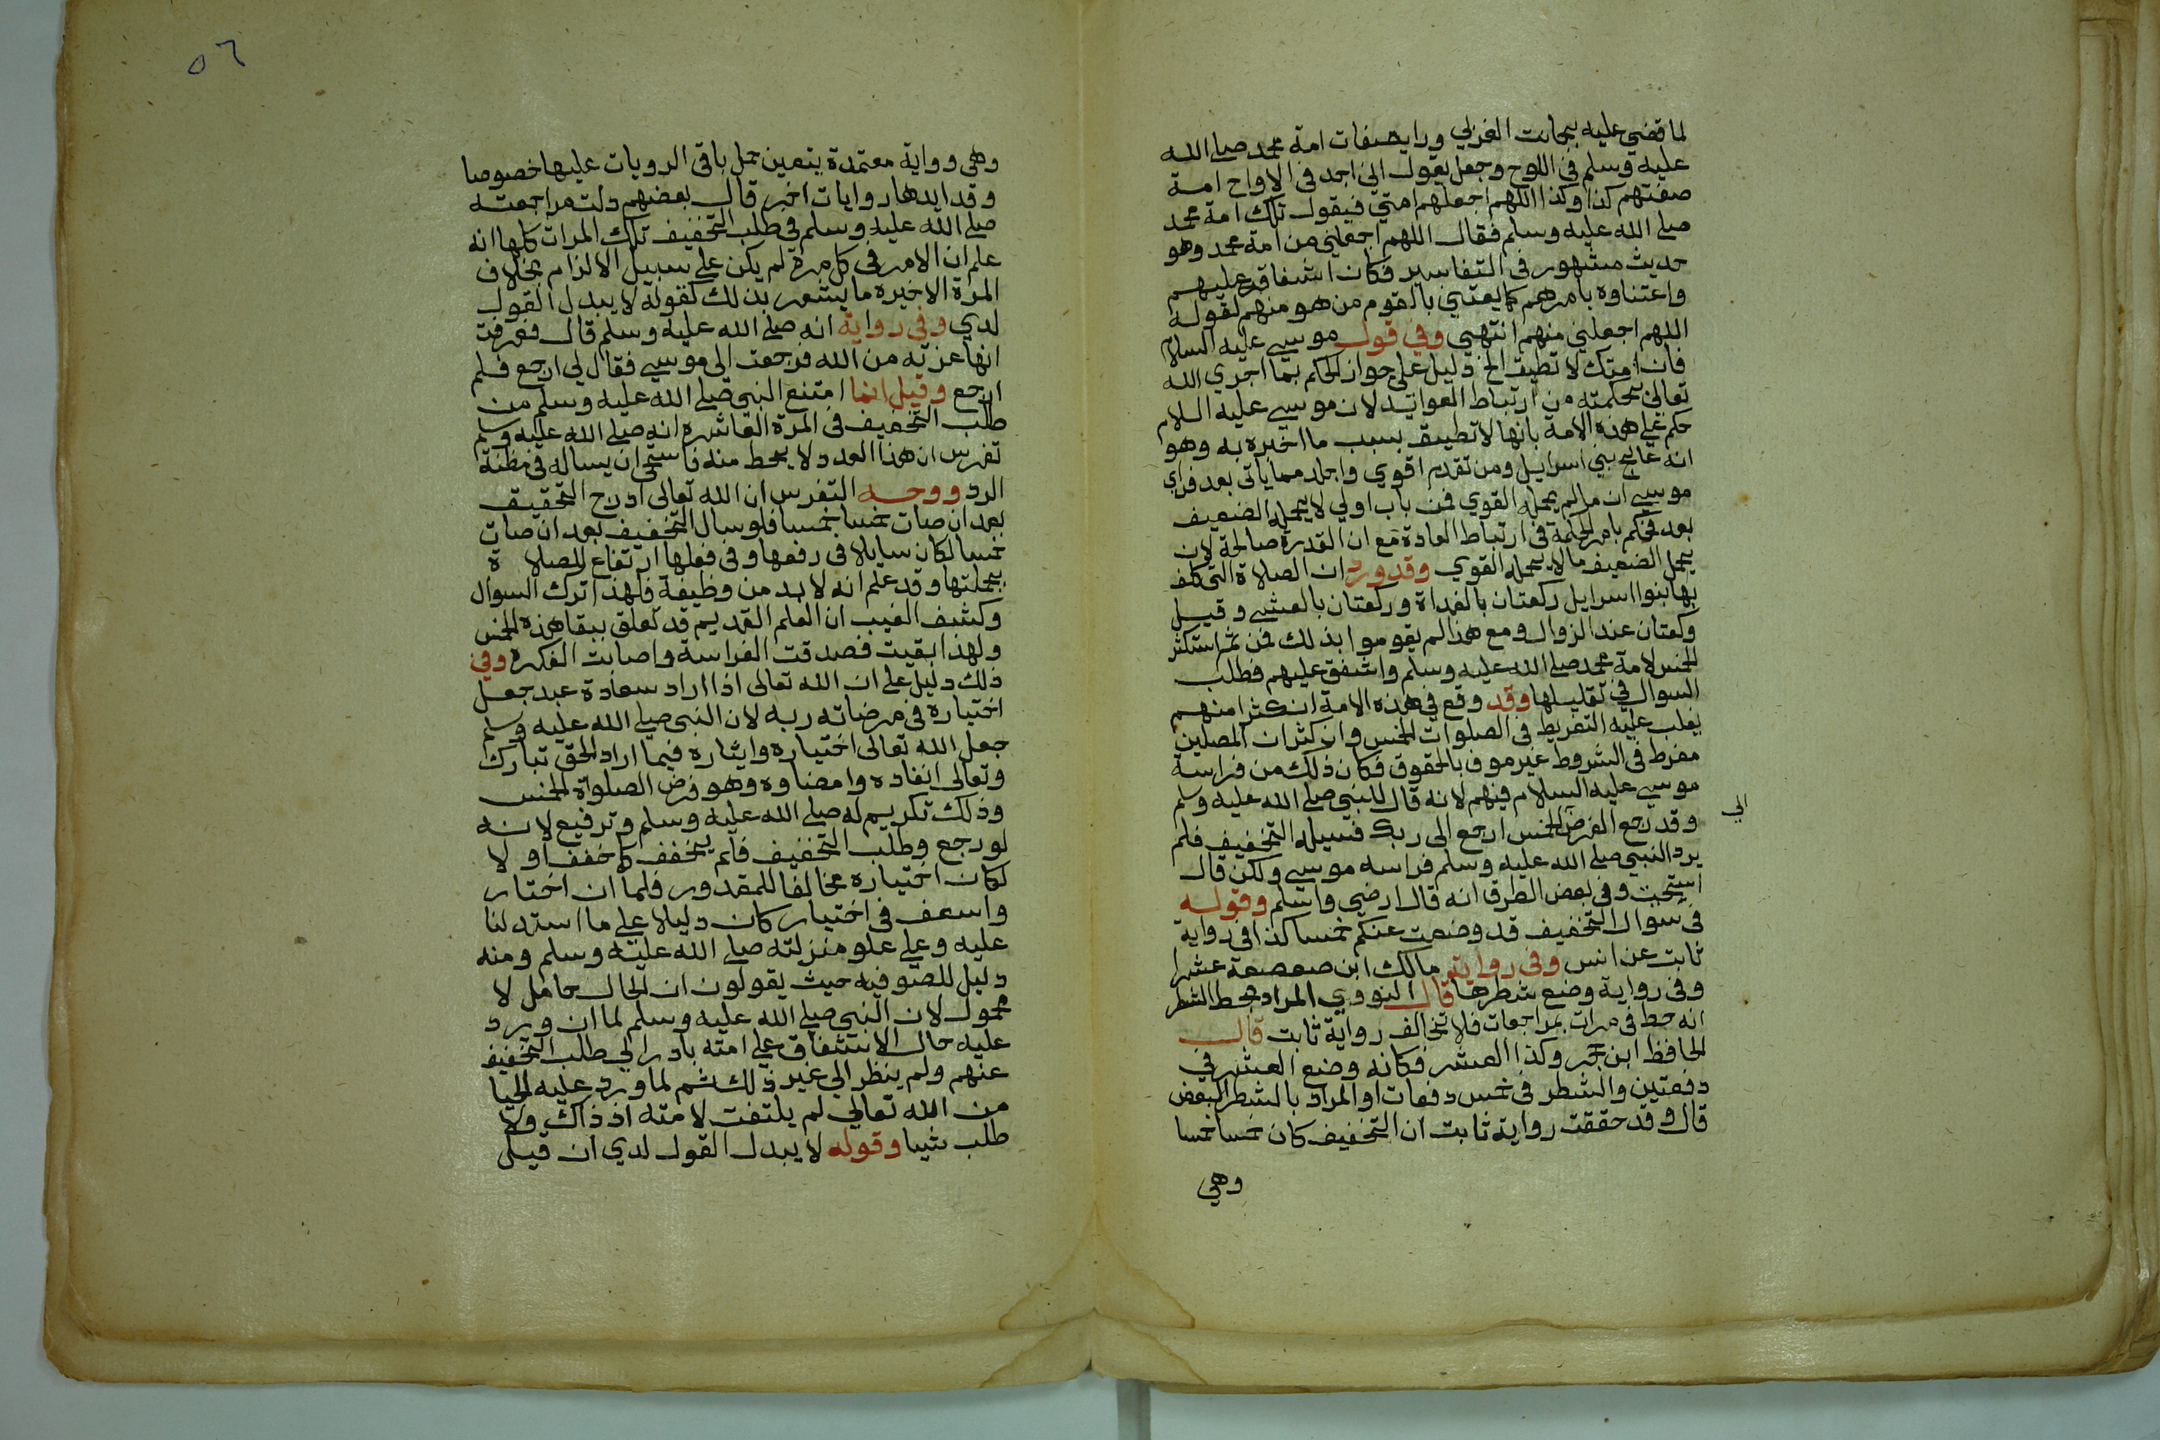 لما قضي عليه بجانب الغربي وراي صفات امة محمد صلي الله
عليه وسلم في اللوح وجعل يقول اني اجد في الالواح امة
صفتهم كذا وكذا اللهم اجعلهم امتي فيقول تلك امة محمد
صلي الله عليه وسلم فقال اللهم اجعلني من امة محمد وهو
حديث مشهور في التفاسير فكان اشفاقه عليهم
واعتناوه بامرهم كما يعتني بالقوم من هو منهم لقوله
اللهم اجعلني منهم انتهي وفي قول موسي عليه السلام
فان امتك لا تطيق الخ دليل علي جواز الحكم بما اجري الله
تعالي بحكمته من ارتباط العوايد لان موسي عليه السلام
حكم علي هذه الامة بانها لا تطيق بسبب ما اخبره به وهو
انه عالج بني اسرايل ومن تقدم اقوي واجلد ممن ياتي بعد فراي
موسي ان ما لم يحمله القوي فمن باب اولي لا يحمله الضعيف
بعد فحكم باثر الحكمة في ارتباط العادة مع ان القدرة صالحة لان
يحمل الضعيف ما لا يحمله القوي وقد ورد ان الصلاة التي كلف
بها بنوا اسرايل ركعتان بالغداة وركعتان بالعشي وقيل
وكعتان عند الزوال ومع هذا لم يقوموا بذلك فمن ثم استكثر
الخمس لامة محمد صلي الله عليه وسلم واشفق عليهم فطلب
السوال في تقليلها وقد وقع في هذه الامة ان كثرا منهم
يغلب عليه التفريط في الصلوات الخمس وان كثران المصلين
مفرط في الشروط غير موف بالحقوق فكان ذلك من فراسة
موسي عليه السلام فيهم لانه قال للنبي صلي الله عليه وسلم
وقد رجع الفرض الي الخمس ارجع الي ربك فسيله التخفيف فلم
يرد النبي صلي الله عليه وسلم فراسه موسي ولكن قال
استحيت وفي بعض الطرق انه قال ارضي واسلم وقوله
في سوال التخفيف قد وضعت عنكم خمسا كذا في رواية
ثابت عن انس وفي رواية مالك ابن صعصعة عشرا
وفي رواية وضع شطرها قال النووي المراد بحط الشطر
انه حط في مرات بمراجعات فلا تخالف رواية ثابت قال
الحافظ ابن حجر وكذا العشر فكانه وضع العشر في
دفعتين والشطر في خمس دفعات او المراد بالشطر البعض
قال وقد حققت رواية ثابت ان التخفيف كان خمسا خمسا
وهي
٥٦
وهي وواية معتمدة يتعين حمل باقي الرويات عليها خصوصا
وقد ايدها روايات اخر قال بعضهم دلت مراجعته
صلي الله عليه وسلم في طلب التخفيف تلك المرات كلها انه
علم ان الامر في كل مرة لم يكن علي سبيل الالزام بخلاف
المرة الاخيرة ما يشعر بذلك لقوله لا يبدل القول
لدي وفي رواية انه صلي الله عليه وسلم قال فعرفت
انها عزته من الله فرجعت الي موسي فقال لي ارجع فلم
ارجع وقيل انما امتنع النبي صلي الله عليه وسلم من
طلب التخفيف في المرة العاشرة انه صلي الله عليه وسلم
تفرس ان هذا العدد لا يحط منه فاستحي ان يساله في مظنة
الرد ووجه التفرس ان الله تعالي ادرج التحقيق
بعد ان صات خمسا بخمسا فلو سال التخفيف بعد ان صات
خمسا لكان سايلا في رفعها وفي فعلها ارتفاع للصلاة
بجملتها وقد علم انه لا بد من وظيفة فلهذا ترك السوال
وكشف الغيب ان العلم القديم قد تعلق ببقا هذه الخمس
ولهذا بقيت فصدقت الفراسة واصابت الفكرة وفي
ذلك دليل علي ان الله تعالي اذا اراد سعادة عبد جعل
اختياره في مرضاته ربه لان النبي صلي الله عليه وسلم
جعل الله تعالي اختياره وايثاره فيما اراد الحق تبارك
وتعالي انفاده وامضاوه وهو فرض الصلواة الخمس
وذلك تكريم له صلي الله عليه وسلم وترفيع لانه
لو رجع وطلب التخفيف فلم يخفف كما خفف اولا
لكان اختياره مخالفا للمقدور فلما ان اختار
واسعف في اختيار كان دليلا علي ما استدلنا
عليه وعلي علو منزلته صلي الله عليه وسلم ومنه
دليل للصوفيه حيث يقولون ان الحال حامل لا
محمول لان النبي صلي الله عليه وسلم لما ان ورد
عليه حال الاشفاق علي امته بادر الي طلب التخفيف
عنهم ولم ينظر الي غير ذلك ثم لما ورد عليه الحيا
من الله تعالي لم يلتفت لامته اذ ذاك ولا
طلب شيا وقوله لا يبدل القول لدي ان قيل